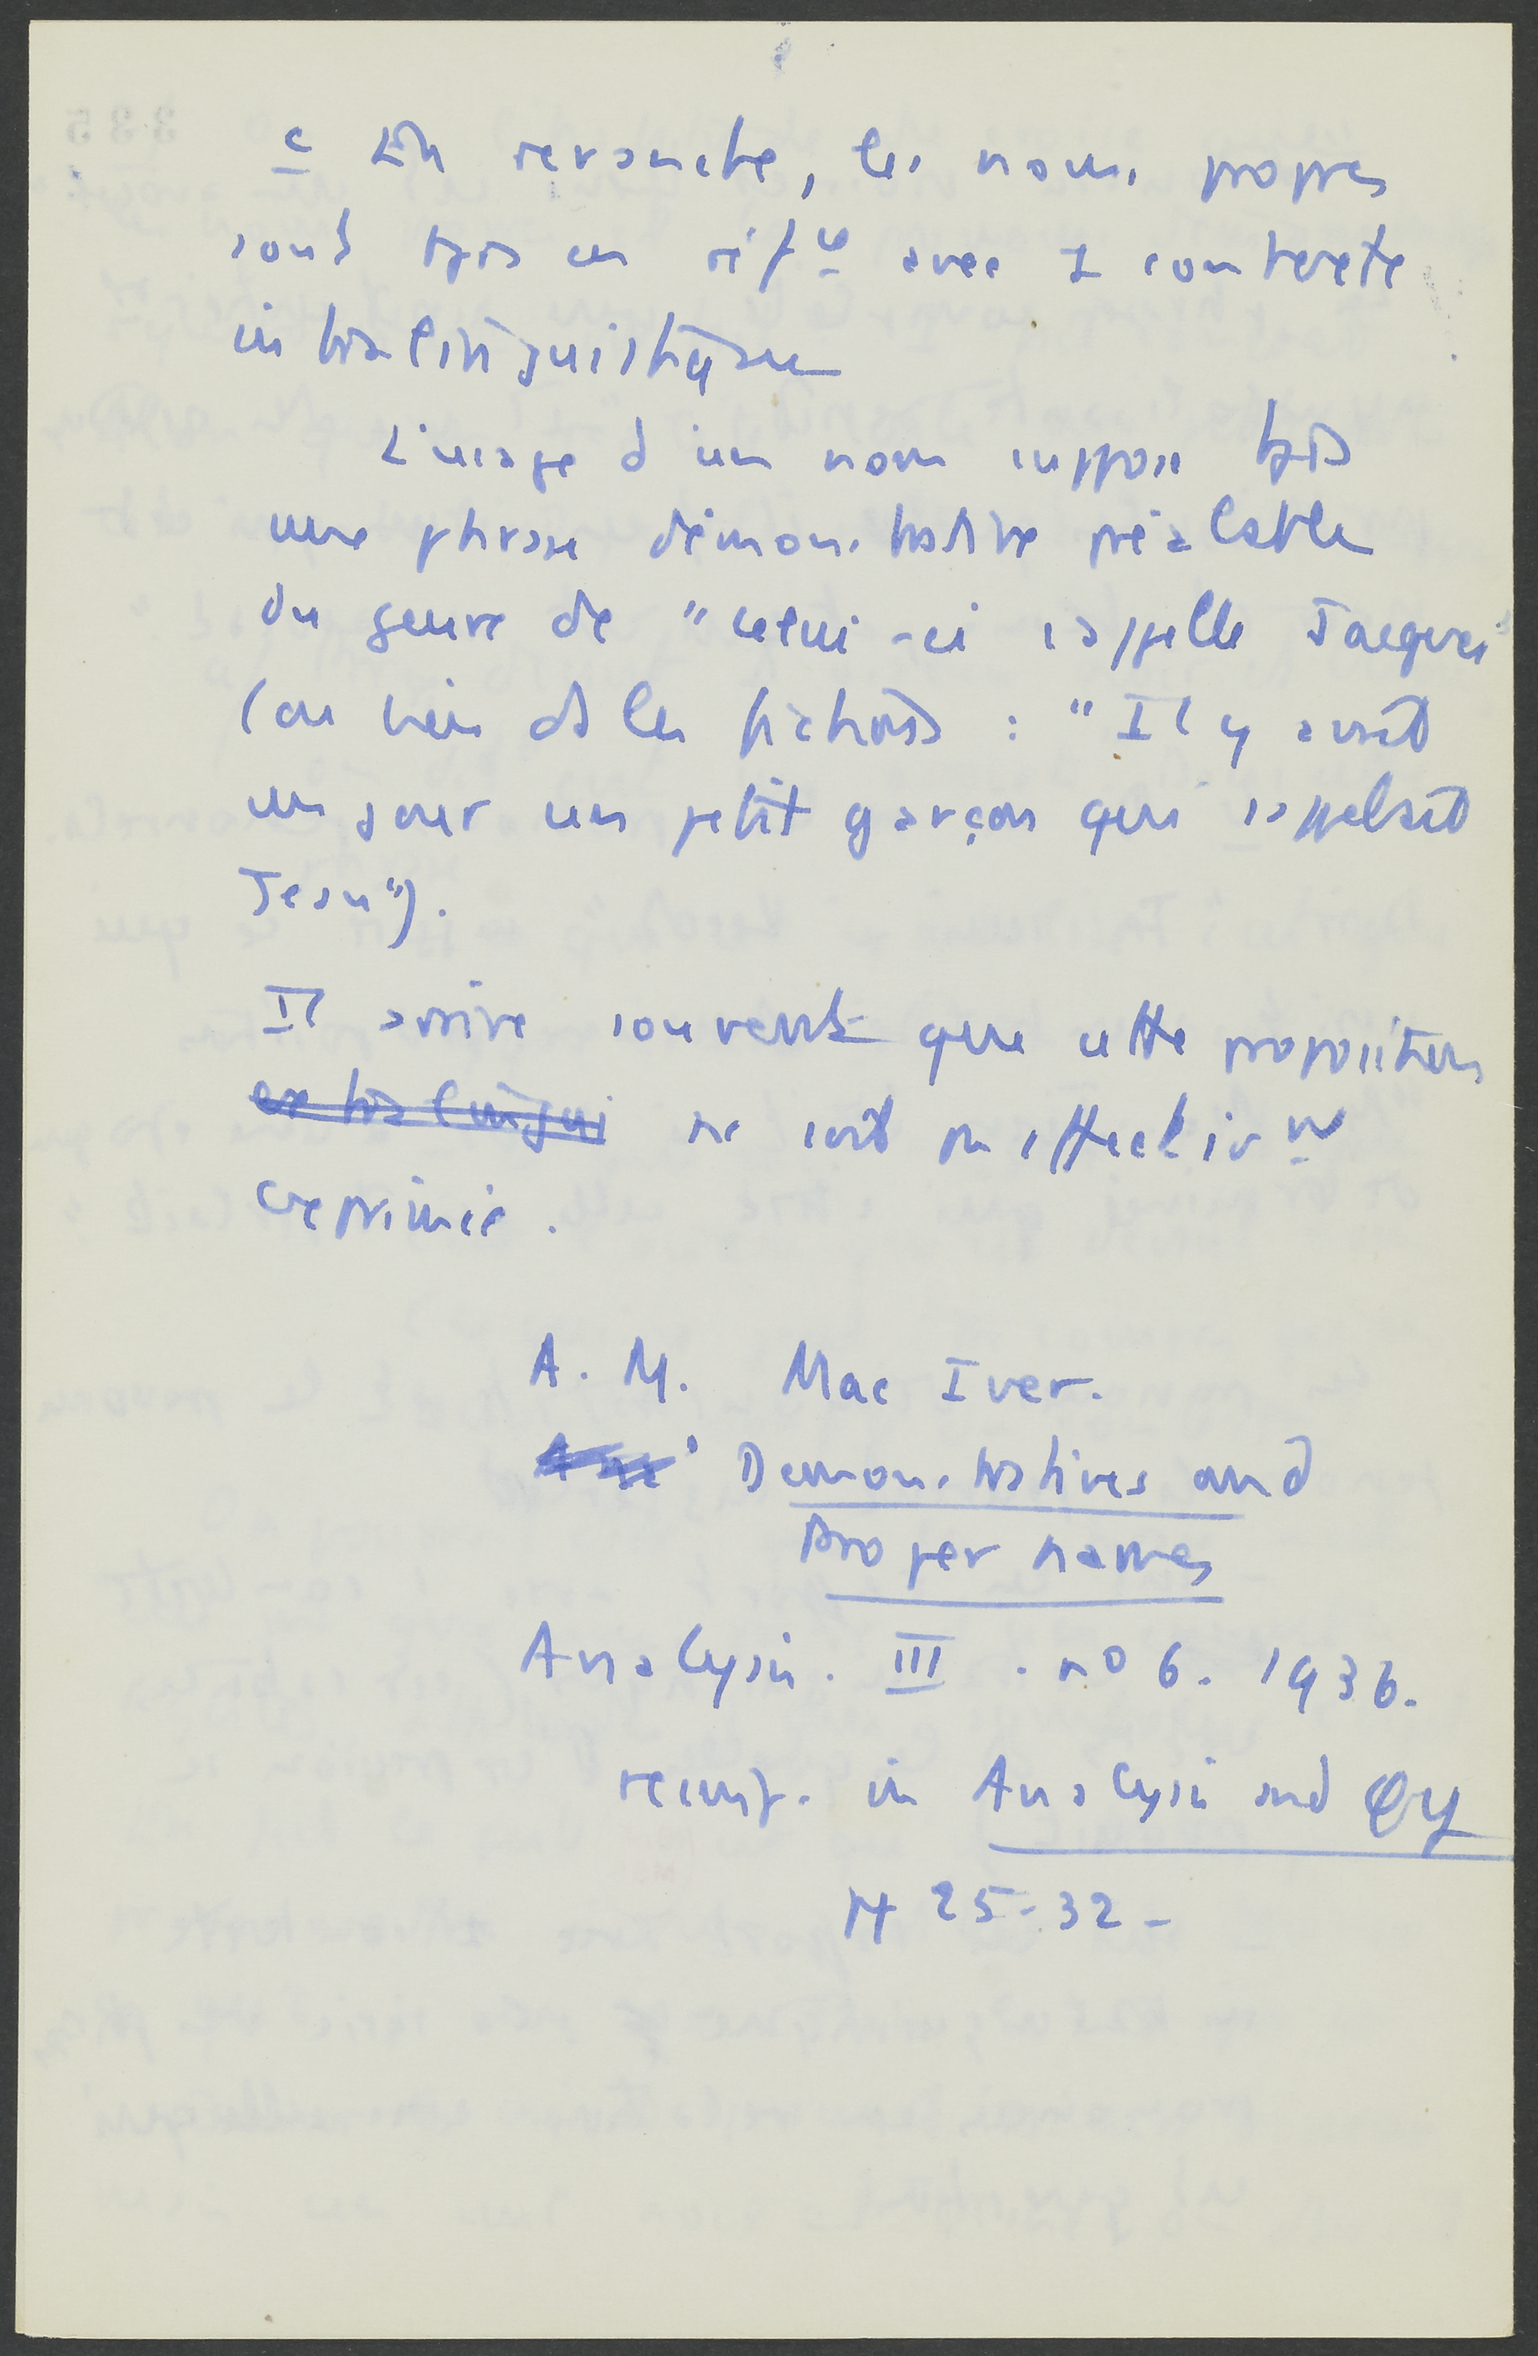 c En revanche, les noms propres
sont tjrs en réfce avec 1 contexte
intralinguistique
L'usage d'un nom suppose tjrs
une phrase démonstrative préalable
du genre de "celui-ci s'appelle Jacques"
(ou bien ds les fictions : "Il y avait
un jour un petit garçon qui s'appelait
Jean").
Il arrive souvent que cette proposition
extralingui ne soit pas effectivt
exprimée.
A. M. Mac Iver.
Demonstratives and
Proper names
Analysis. III . no 6. 1936.
reimp. in Analysis and φy
pp 25-32-